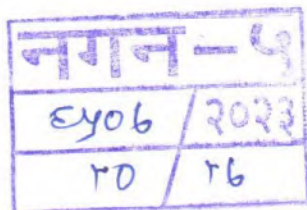 नगन-५
६५०७ / २०२३
१० / १७